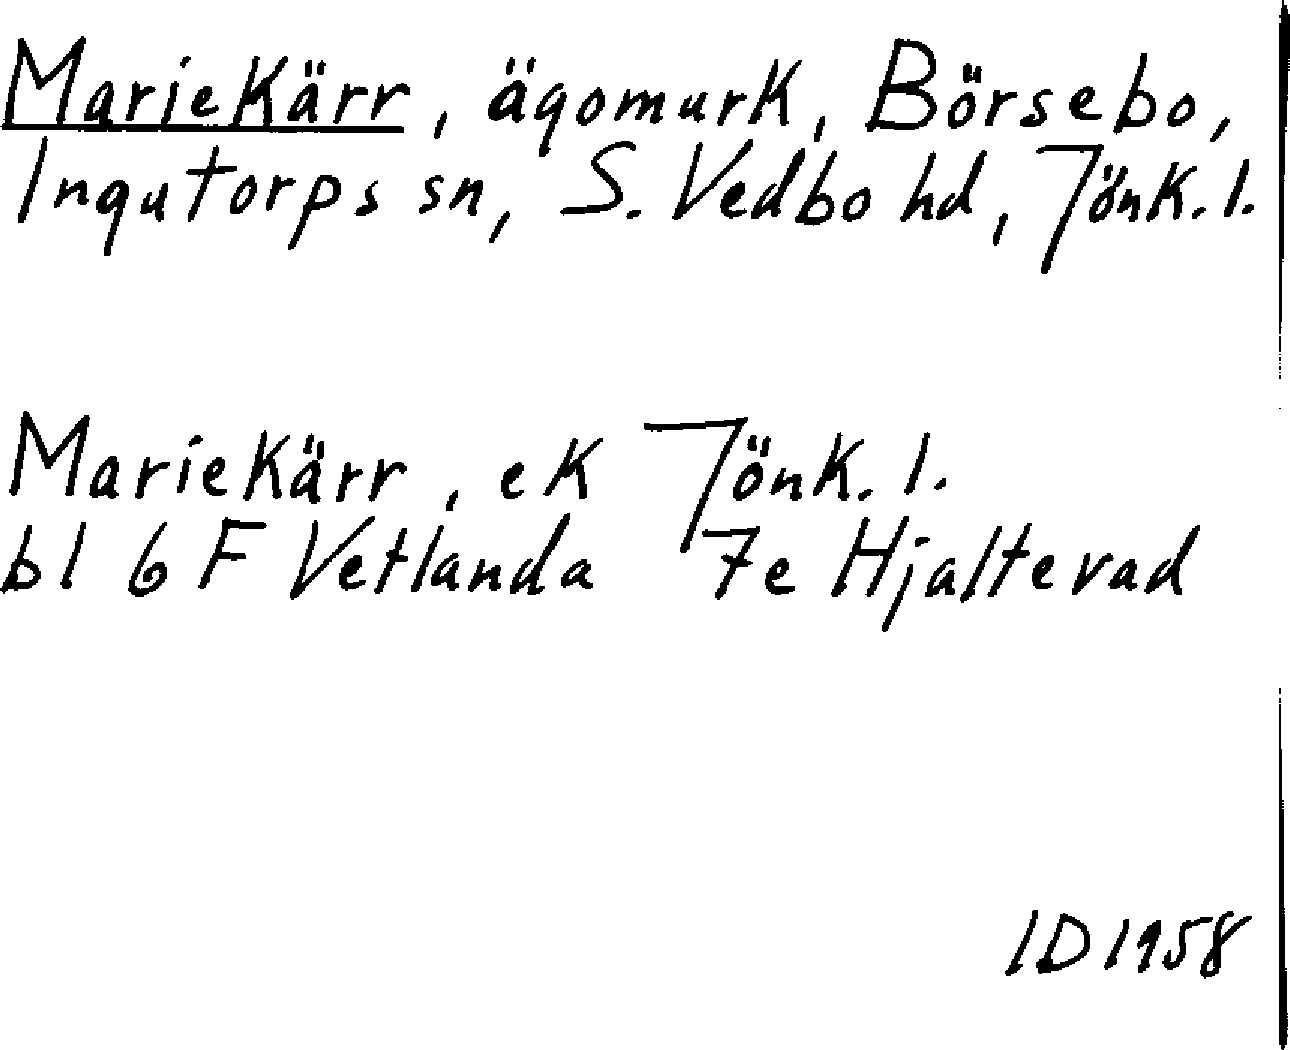 Mariekärr, ägomark, Börsebo,
Ingatorps sn, S. Vedbo hd, Jönk. l.
Mariekärr, ek Jönk. l.
bl 6 F Vetlanda 7e Hjaltevad
ID 1958